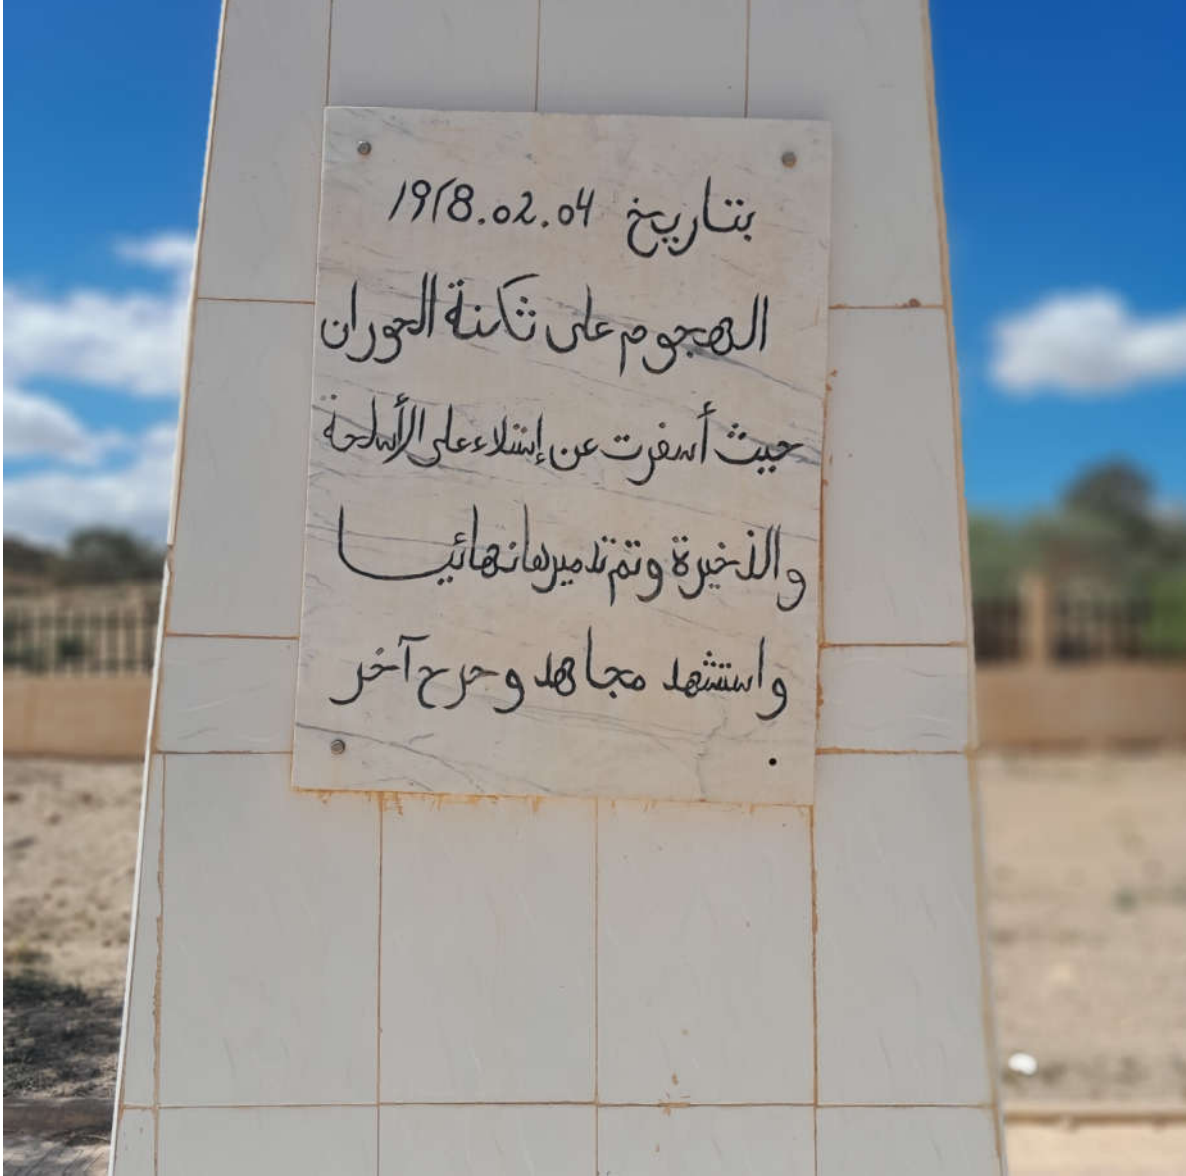 بتاريخ 1918.02.04
الهجوم على ثكنة الحوران
حيث أسفرت عن إستلاء على الأسلحة
والذخيرة وتم تدميرها نهائيا
واستشهد مجاهد وجرح آخر
.